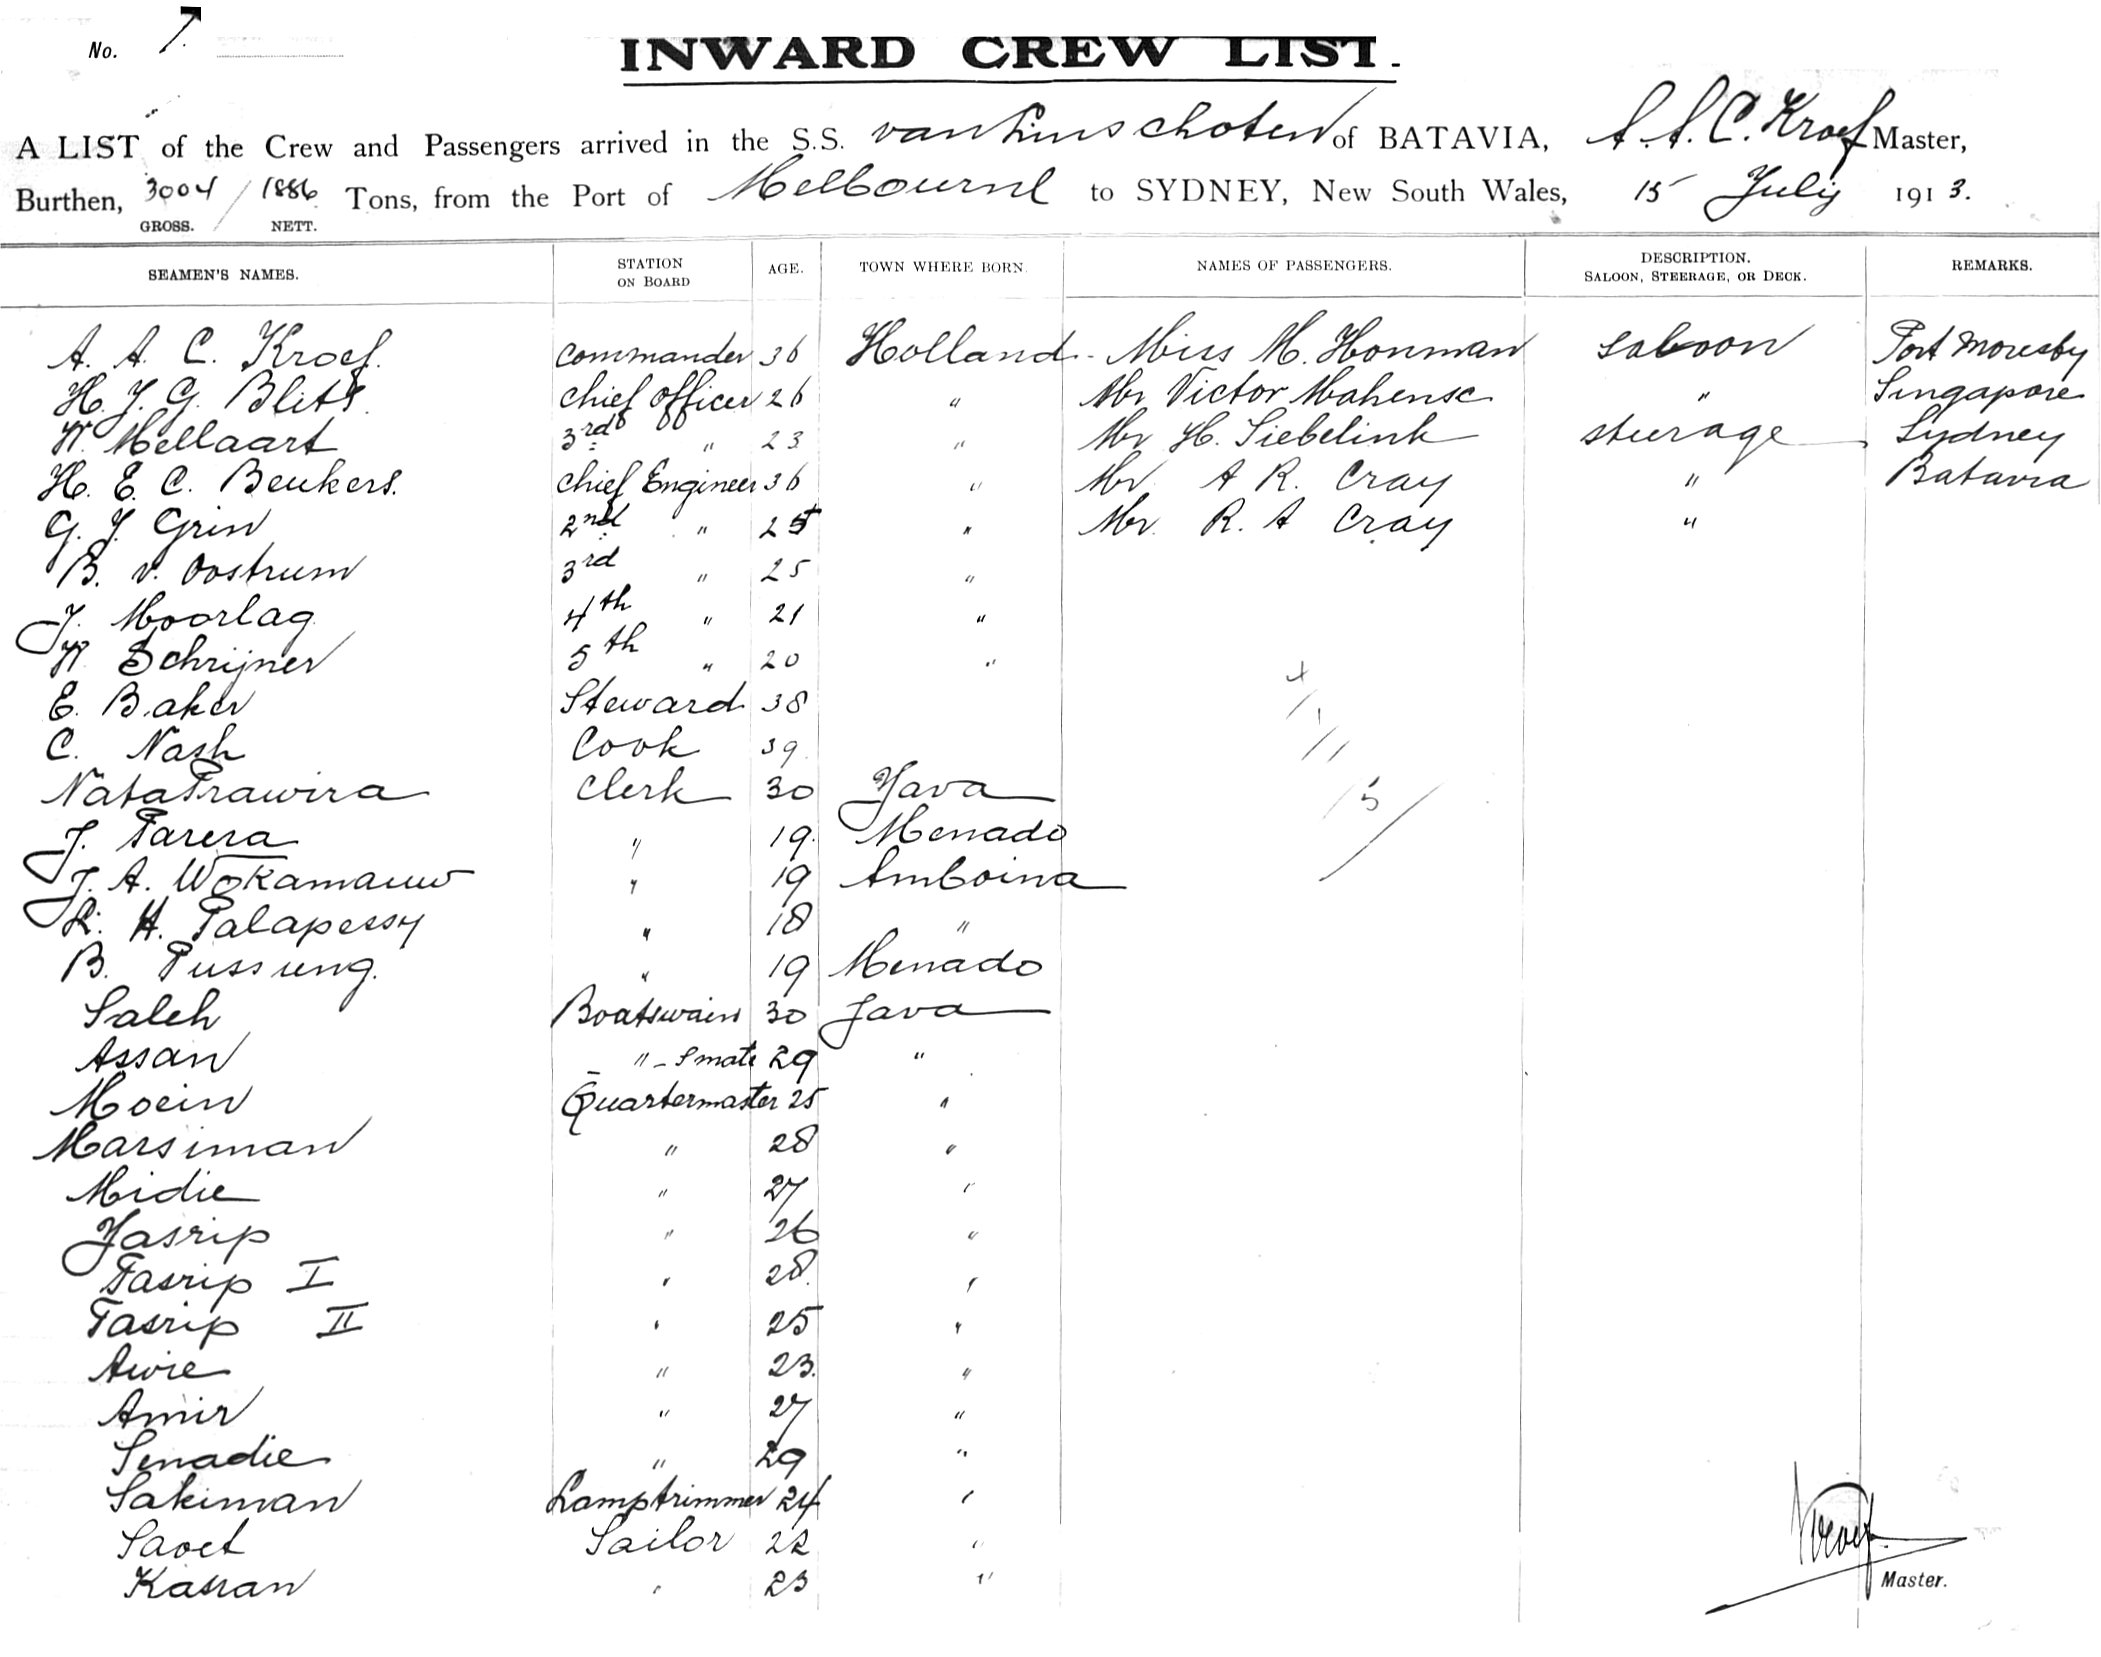 No. 7.
INWARD CREW LIST.
A LIST of the Crew and Passengers arrived in the S.S. van Linschoten of BATAVIA, A. A. C. Kroef Master,
Burthen, 3004 / 1886 Tons, from the Port of Melbourne to SYDNEY, New South Wales, 15 July 1913.
GROSS. NETT.
SEAMEN'S NAMES. STATION ON BOARD AGE. TOWN WHERE BORN. NAMES OF PASSENGERS. DESCRIPTION. SALOON, STEERAGE, OR DECK. REMARKS.
A. A. C. Kroef. Commander 36 Holland - Miss M. Honman saloon Port Moresby
H. J. G. Blits. chief officer 26 " Mr Victor Mahense " Singapore
W. Mellaart 3rd " 23 " Mr H. Siebelink steerage Sydney
H. E. C. Beukers. chief Engineer 36 " Mr A R. Cray " Batavia
G. J. Grin 2nd " 25 " Mr. R. A Cray "
B. v. Oostrum 3rd " 25 "
J. Moorlag 4th " 21 "
W Schrijner 5th " 20 "
E. Baker Steward 38
C. Nash Cook 39.
NataPrawira Clerk 30 Java
J. Parera " 19. Menado
J. A. Wokamauw " 19 Amboina
R. H. Palapessy " 18 "
B. Pussung. " 19 Menado
Saleh Boatswain 30 Java
Assan " - Smate 29 "
Moein Quartermaster 25 "
Marsiman " 28 "
Midie " 27 "
Jasrip " 26 "
Tasrip I " 28. "
Tasrip II " 25 "
Awie " 23. "
Amir " 27 "
Senadie " 29 "
Sakiman Lamptrimmer 24 "
Saoet Sailor 22 "
Kasran " 23 "
5
Kroef.
Master.